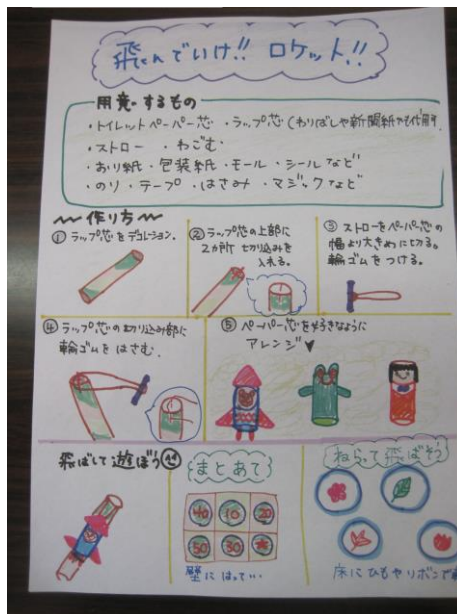 飛んでいけ!! ロケット!!
用意するもの
・トイレットペーパー芯 ・ラップ芯 (わりばしや新聞紙でも代用可
・ストロー ・わごむ
・おり紙 ・包装紙 ・モール ・シールなど
・のり ・テープ ・はさみ ・マジックなど
作り方
① ラップ芯をデコレーション.
② ラップ芯の上部に
2カ所 切り込みを
入れる。
③ ストローをペーパー芯の
幅より大きめに切る。
輪ゴムをつける。
④ ラップ芯の切り込み部に
輪ゴムをはさむ.
⑤ ペーパー芯を好きなように
アレンジ♥
飛ばして遊ぼう
まとあて
40 10 20
50 30 ★
壁にはって…
ねらって飛ばそう
床にひもやリボンで